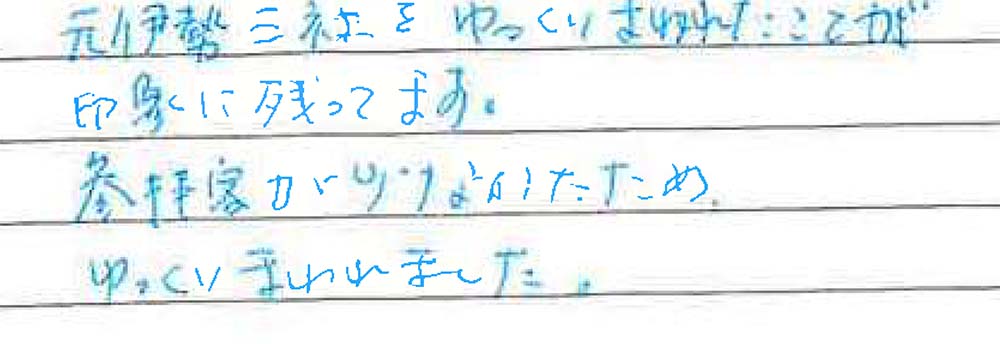 元伊勢三社をゆっくりまわれたことが
印象に残ってます。
参拝客が少なかったため
ゆっくりまわれました。